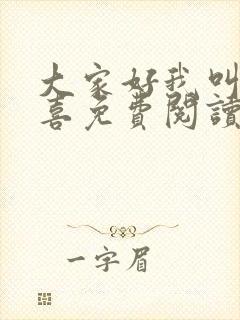 大家好我叫
喜免費閱讀
一字眉